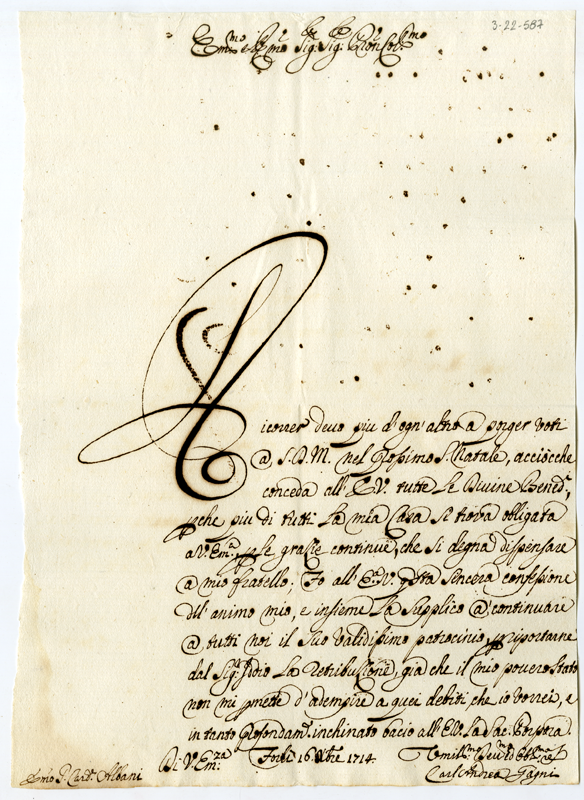 3-22-587
Em.mo e R.mo Sig.r Sig.r P.ron Col.mo
Ricorrer devo piu d'ogn'altro a porger voti
@ S.D.M. nel prossimo S. Natale, acciòche
conceda all'E.V. tutte le Divine Bened.i,
perche piu di tutti la mia Casa si trova obligata
a V. Em.a per le grazie continue, che si degna dispensare
@ mio fratello; Fo all'E.a V. questa sincera confessione
dell'animo mio, e insieme la supplico @ continuare
@ tutti noi il suo validissimo patrocinio, e riportarne
dal Sig.r Iddio la retribuzione, gia che il mio povero stato
non mi permette d'adempire a quei debiti che io vorrei, e
in tanto profondam.te inchinato bacio all'E.V. la Sac. Porpora.
Di V. Em.za Forlì 16. Xbre 1714
Carl'Andrea
Emo S. Card. Albani